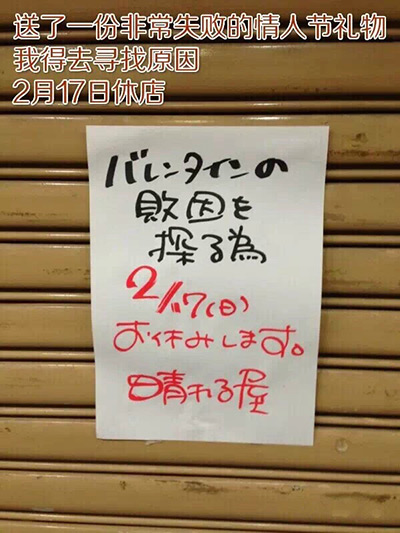 送了一份非常失败的情人节礼物
我得去寻找原因
2月17日休店
バレンタインの
敗因を
探る為
2/17(日)
お休みします。
晴れる屋